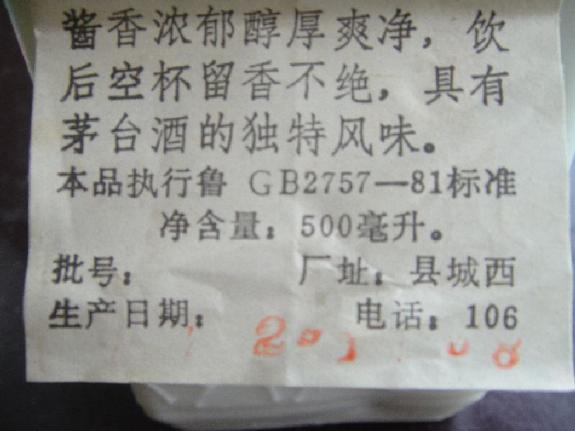 酱香浓郁醇厚爽净，饮
后空杯留香不绝，具有
茅台酒的独特风味。
本品执行鲁 GB2757—81标准
净含量：500毫升。
批号： 厂址：县城西
生产日期： 电话：106